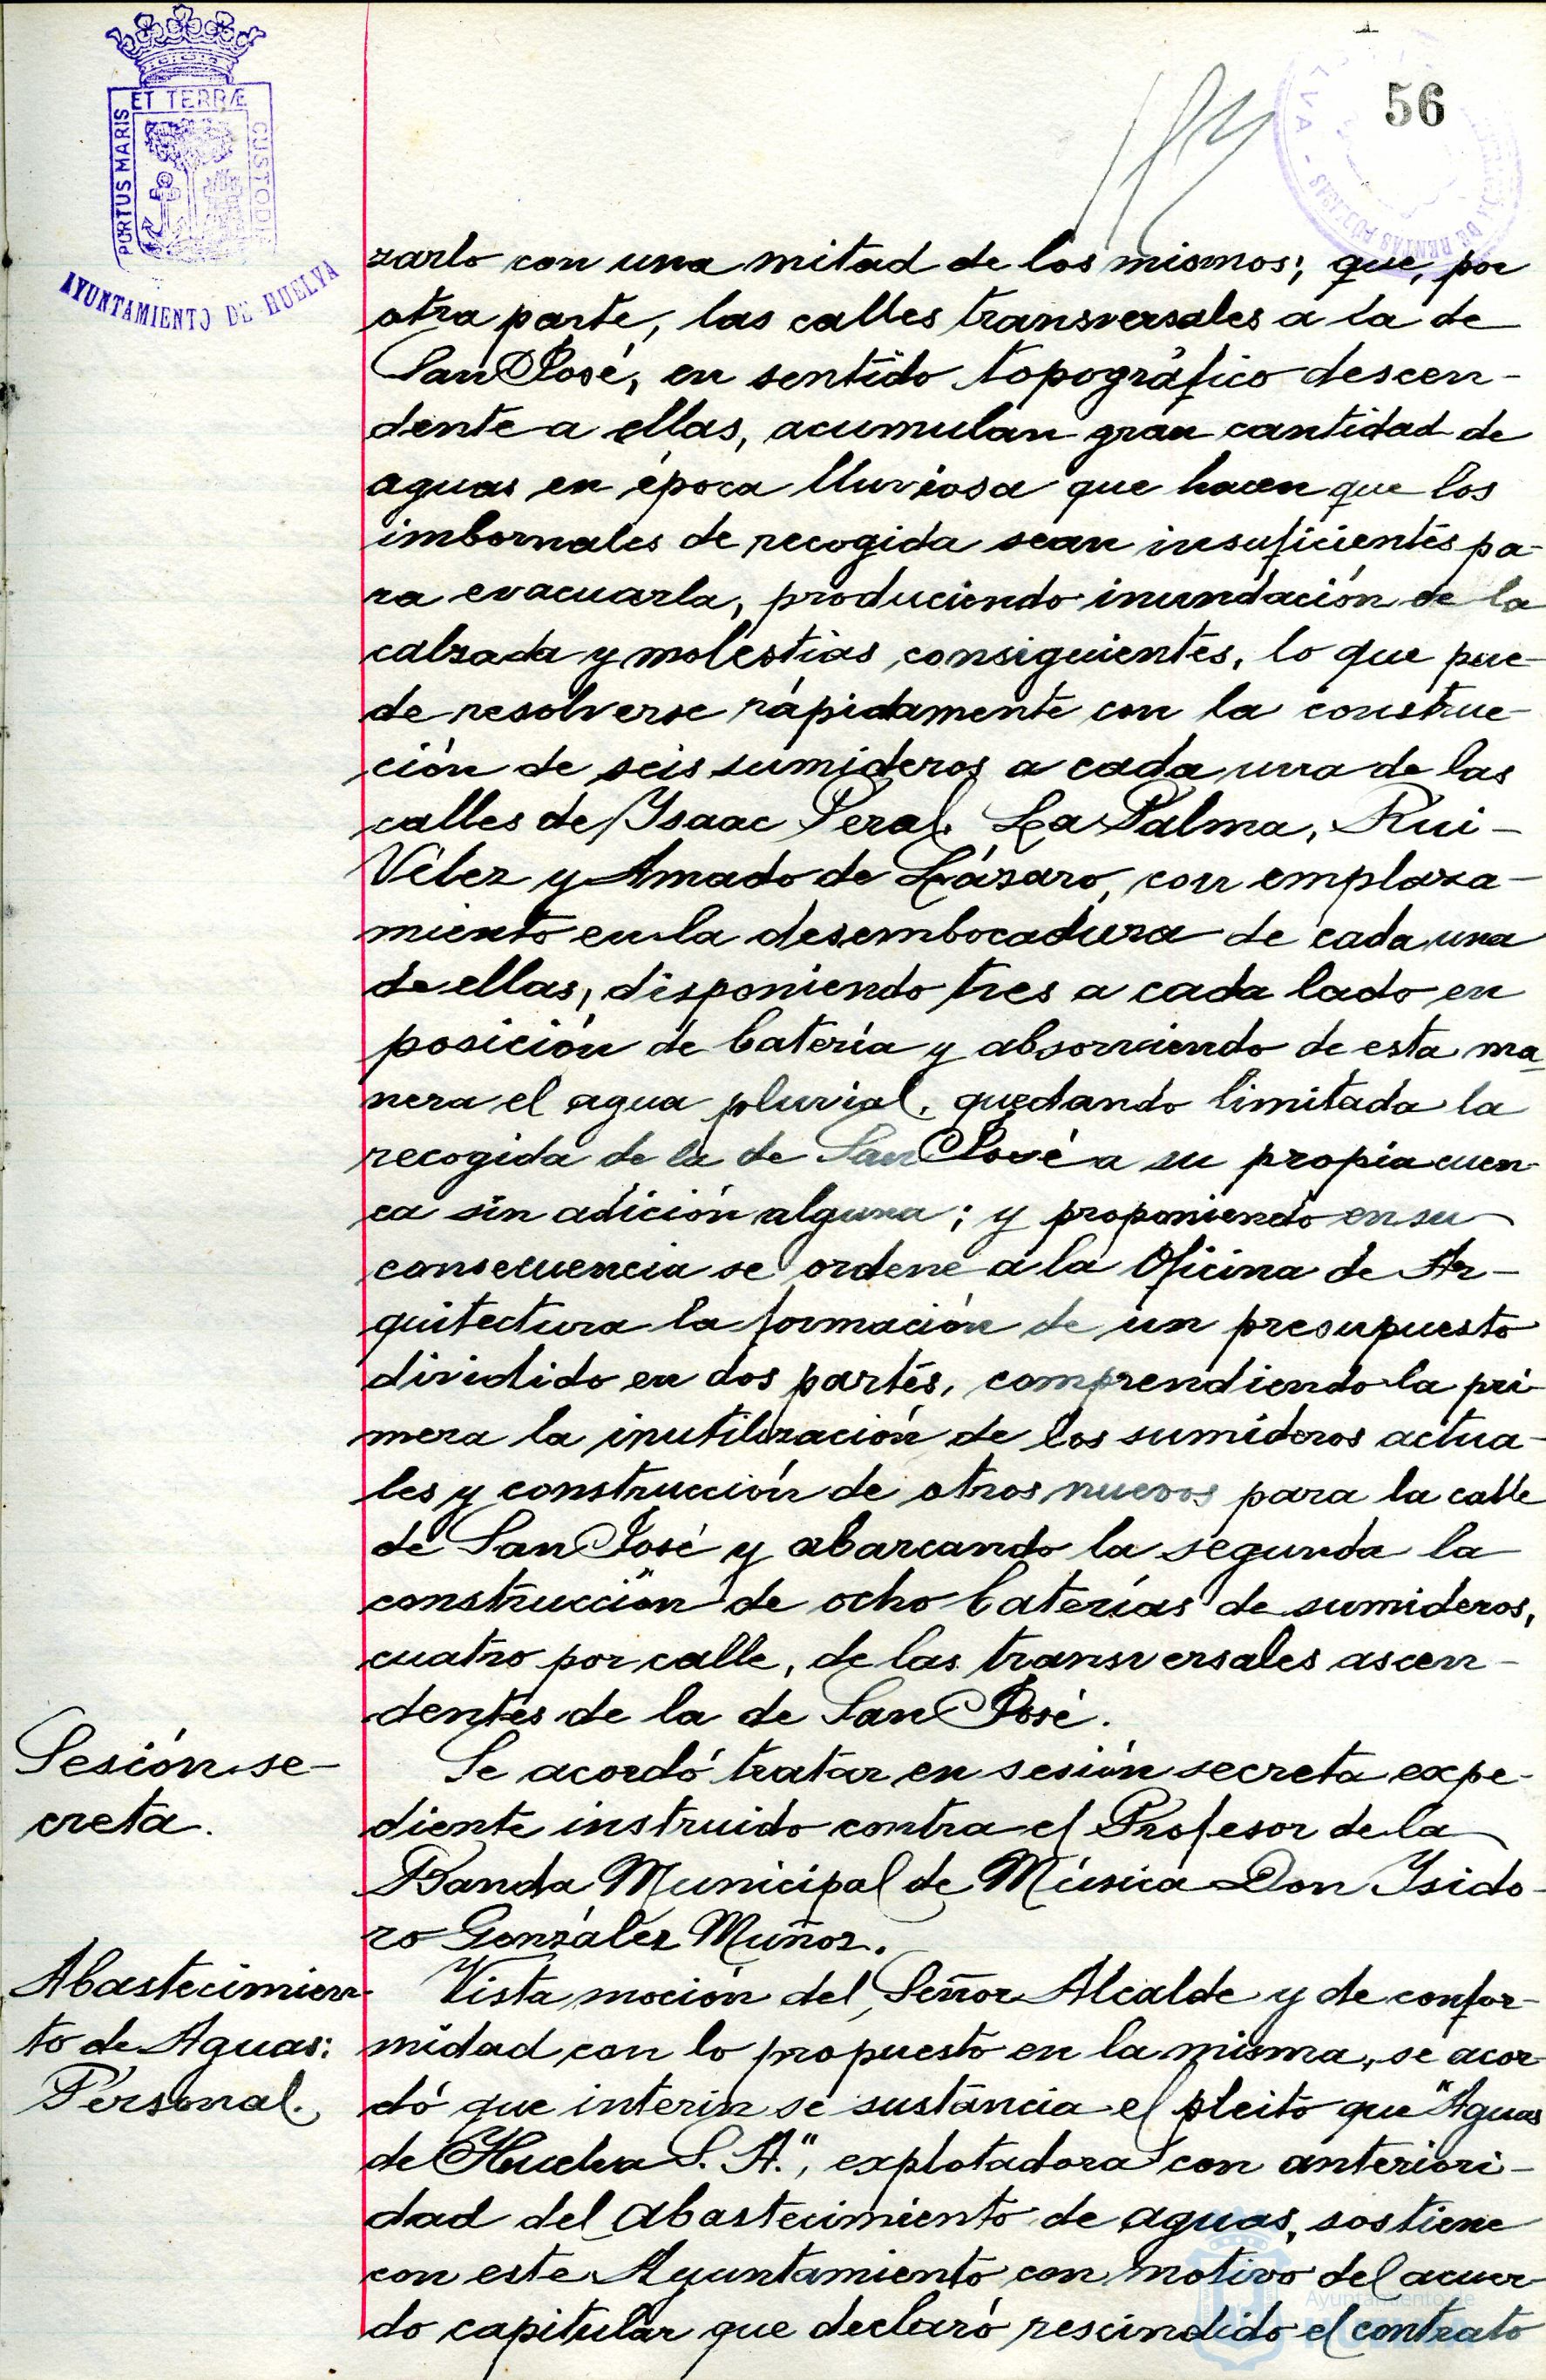 ET TERRÆ
PORTUS MARIS
CUSTODI
AYUNTAMIENTO DE HUELVA
56
zarlo con una mitad de los mismos; que, por
otra parte, las calles transversales a la de
San José, en sentido topográfico descen-
dente a ellas, acumulan gran cantidad de
aguas en época lluviosa que hacen que los
imbornales de recogida sean insuficientes pa-
ra evacuarla, produciendo inundación de la
calzada y molestias consiguientes, lo que pue-
de resolverse rápidamente con la construc-
ción de seis sumideros a cada una de las
calles de Isaac Peral, La Palma, Rui-
Vélez y Amado de Lázaro, con emplaza-
miento en la desembocadura de cada una
de ellas, disponiendo tres a cada lado en
posición de batería y absorviendo de esta ma
nera el agua pluvial, quedando limitada la
recogida de la de San José a su propia cuen-
ca sin adición alguna; y proponiendo en su
consecuencia se ordene a la Oficina de Ar-
quitectura la formación de un presupuesto
dividido en dos partes, comprendiendo la pri-
mera la inutilización de los sumideros actua-
les y construcción de otros nuevos para la calle
de San José y abarcando la segunda la
construcción de ocho baterías de sumideros,
cuatro por calle, de las transversales ascen-
dentes de la de San José.
Sesión se-
creta.
Se acordó tratar en sesión secreta expe-
diente instruido contra el Profesor de la
Banda Municipal de Música Don Isido-
ro González Muñoz.
Abastecimien-
to de Aguas:
Personal.
Vista moción del Señor Alcalde y de confor-
midad con lo propuesto en la misma, se acor-
dó que interin se sustancia el pleito que "Aguas
de Huelva S. A.", explotadora con anteriori-
dad del abastecimiento de aguas, sostiene
con este Ayuntamiento con motivo del acuer-
do capitular que declaró rescindido el contrato
Ayuntamiento de
HUELVA